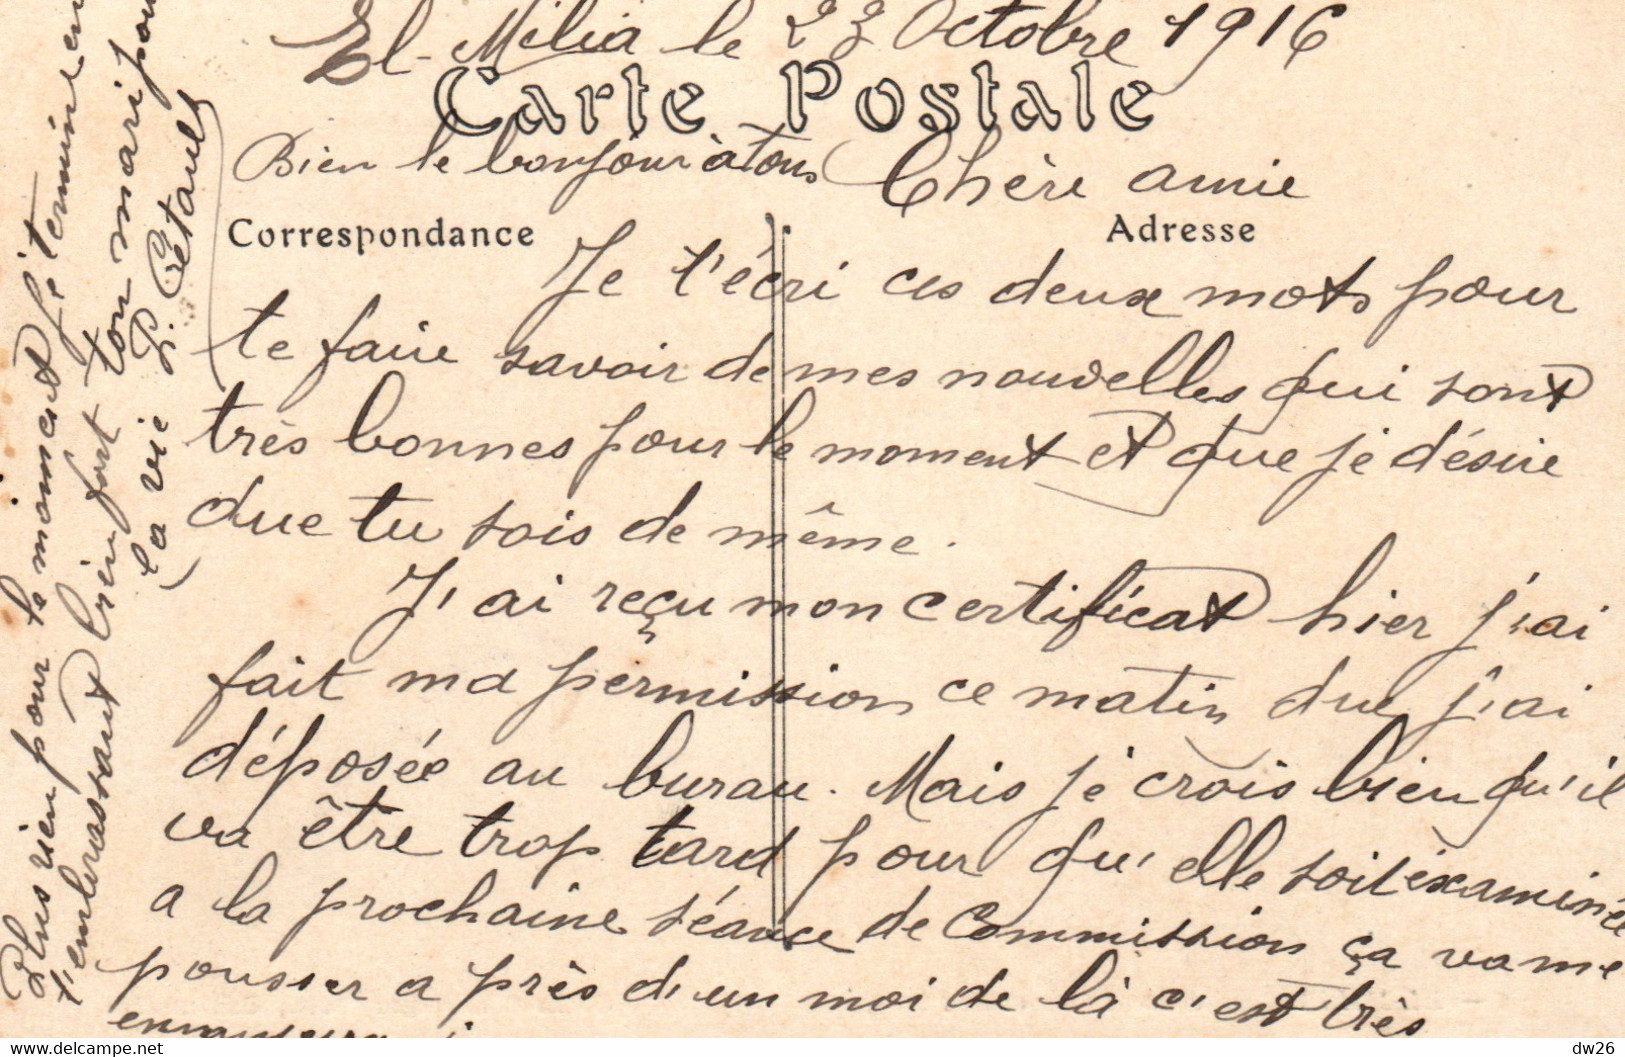 El-Milia le 23 Octobre 1916
Carte Postale
Bien le bonjour à tous
Chère amie
Correspondance
Adresse
Je t'écri ces deux mots pour
te faire savoir de mes nouvelles qui sont
très bonnes pour le moment et que je désire
que tu sois de même.
J'ai reçu mon certificat hier j'ai
fait ma permission ce matin que j'ai
déposée au burau. Mais je crois bien qu'il
va être trop tard pour qu'elle soit éxaminée
a la prochaine séance de Commission ça va me
pousser a près d'un moi de là c'est très
Plus rien pour le moment je termine en
t'embrassant bien fort ton mari pour
la vie P. Crétault
dw26